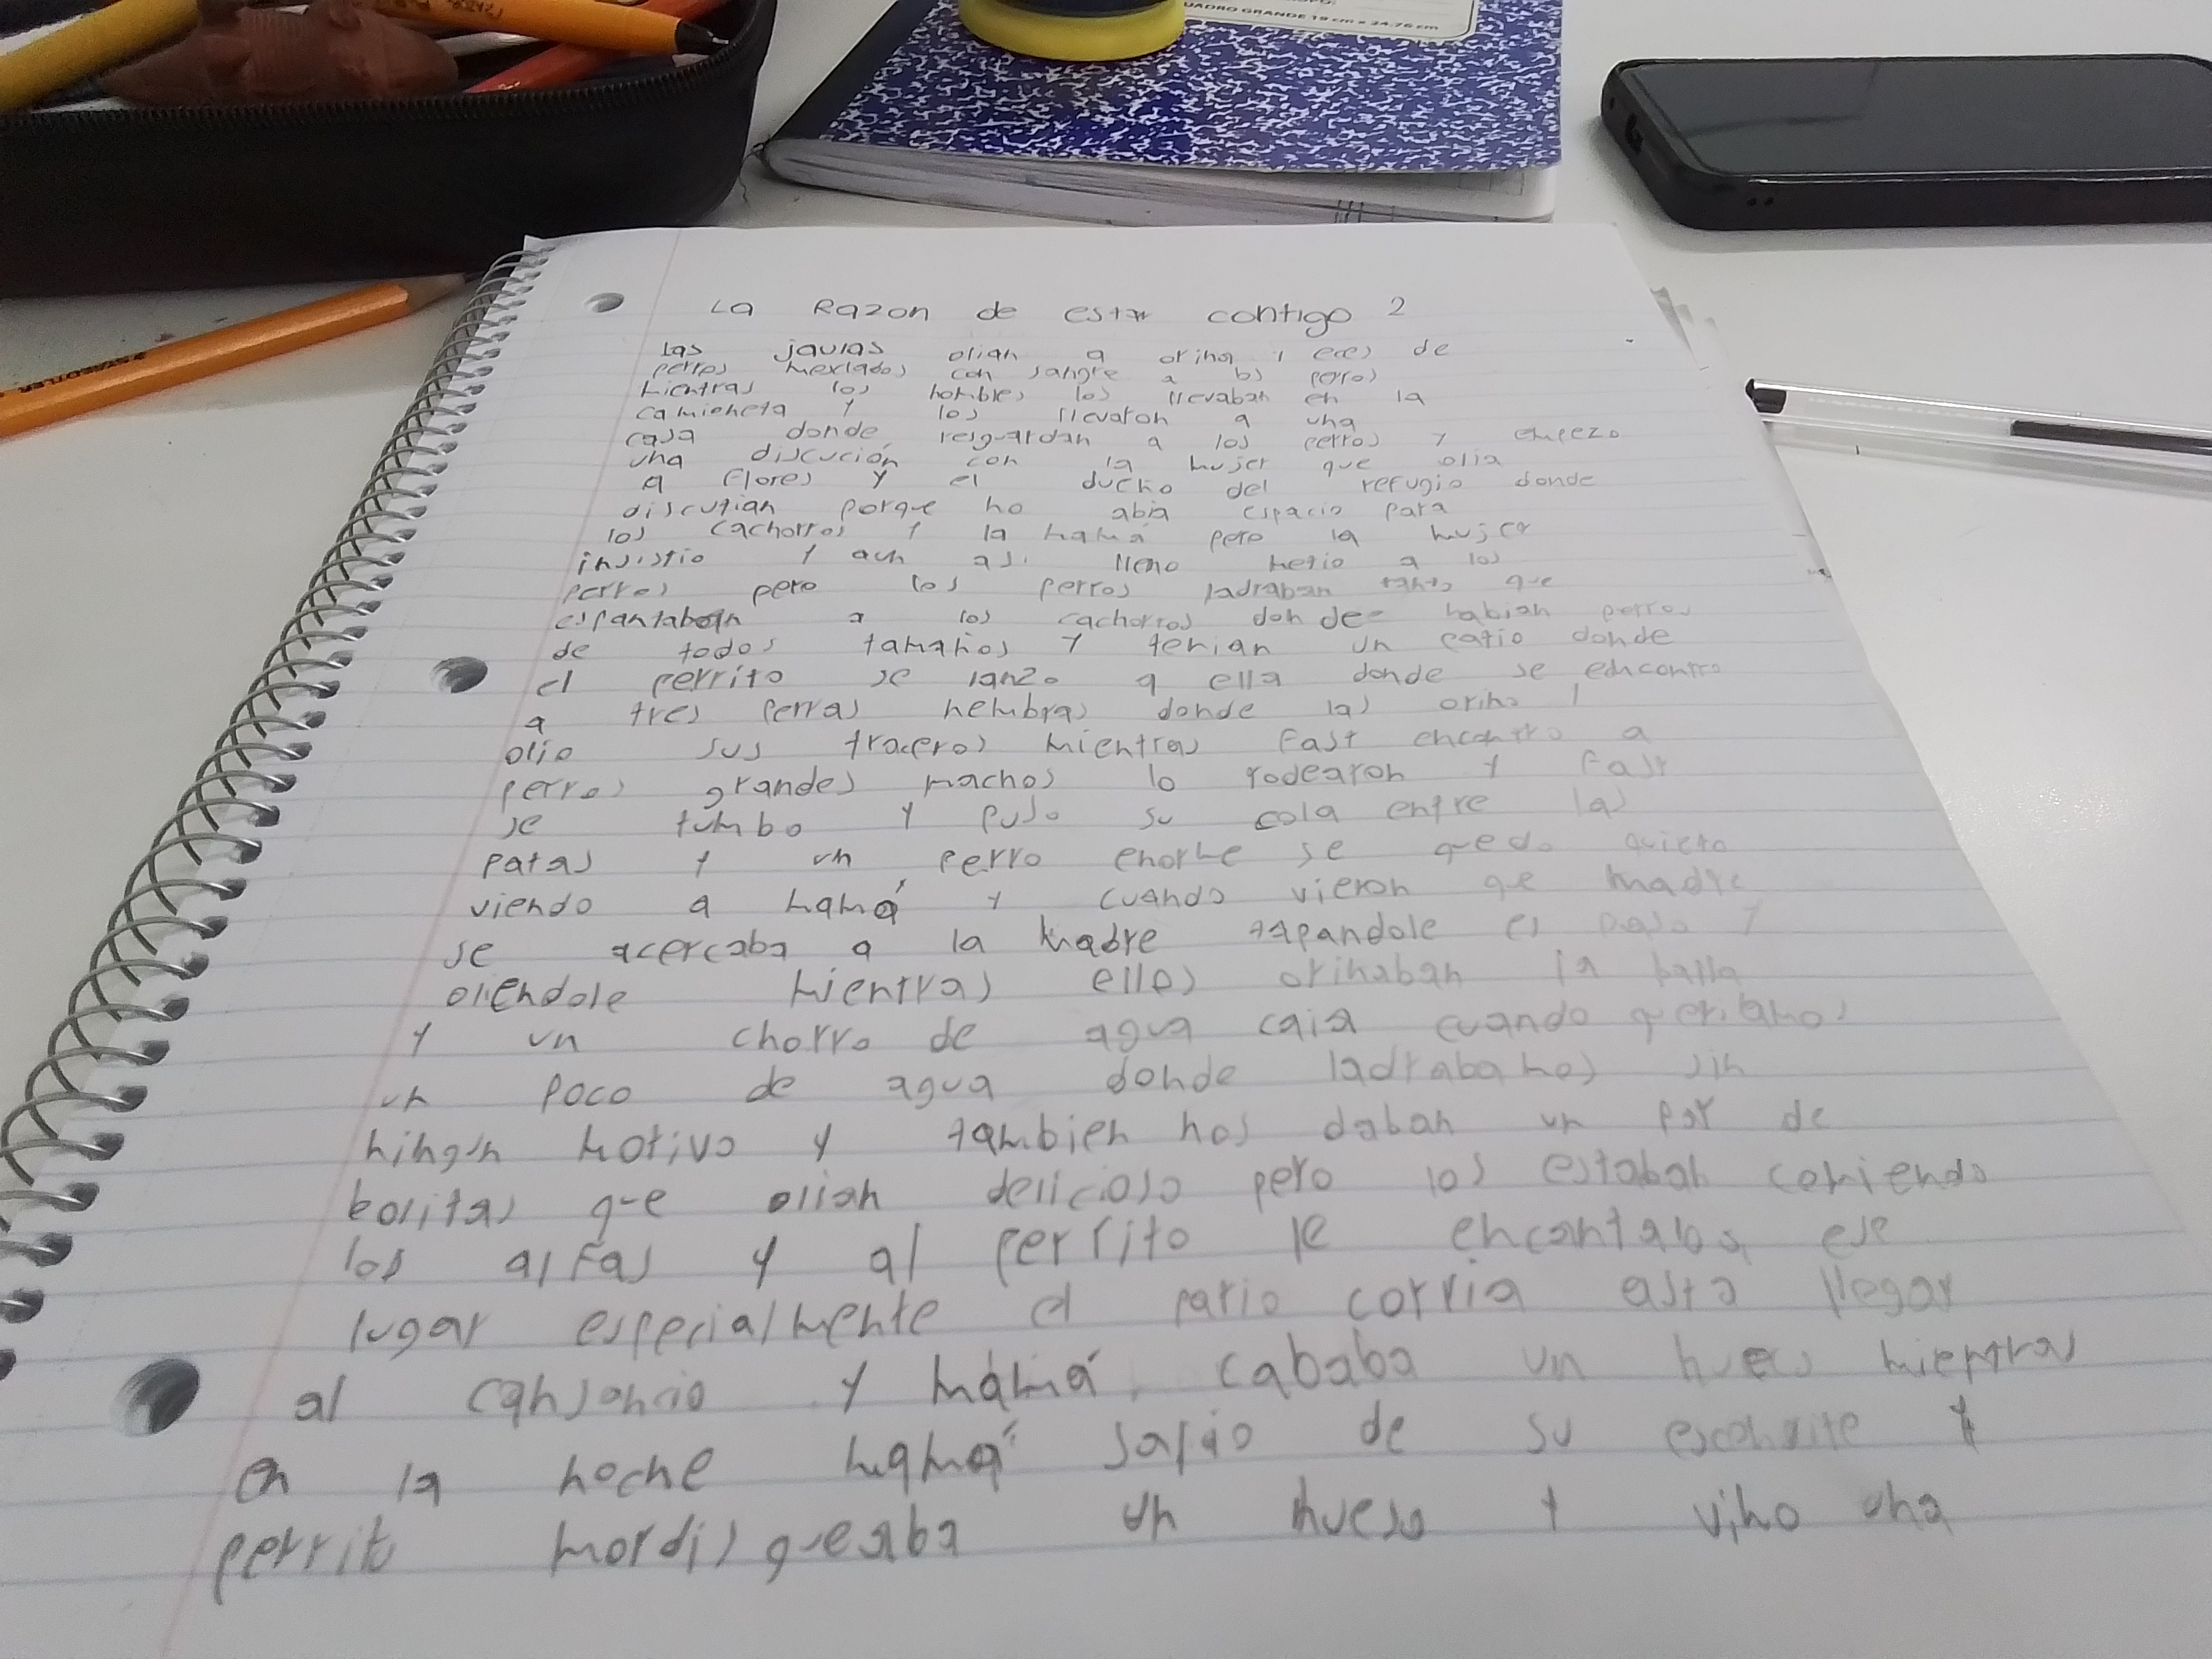 CUADRO GRANDE 19 cm x 24.76 cm
La Razon de estar contigo 2
las jaulas olian a orina y eces de
perros mexlados con sangre a los perros
mientras los hombres los llevaban en la
camioneta y los llevaron a una
casa donde resguardan a los perros y empezo
una discución con la mujer que olia
a flores y el dueño del refugio donde
discutian porque no abia espacio para
los cachorros y la mamá pero la mujer
insistio y aun asi lleno metio a los
perros pero los perros ladraban tanto que
espantaban a los cachorros donde habian perros
de todos tamaños y tenian un patio donde
el perrito se lanzo a ella donde se encontro
a tres perras hembras donde las orino y
olio sus traceros mientras Fast encontro a
perros grandes machos lo rodearon y Fast
se tumbo y puso su cola entre las
patas y un perro enorme se quedo quieto
viendo a mamá y cuando vieron que madre
se acercaba a la madre tapandole el paso y
oliendole mientras ellos orinaban la balla
y un chorro de agua caia cuando queriamos
un poco de agua donde ladrabamos sin
ningun motivo y tambien nos daban un par de
bolitas que olian delicioso pero los estaban comiendo
los alfas y al perrito le encantaba ese
lugar especialmente el patio corria asta llegar
al cansancio y mámá cababa un hueco mientras
en la noche mamá salio de su escondite y
perrito mordisqueaba un hueso y vino una